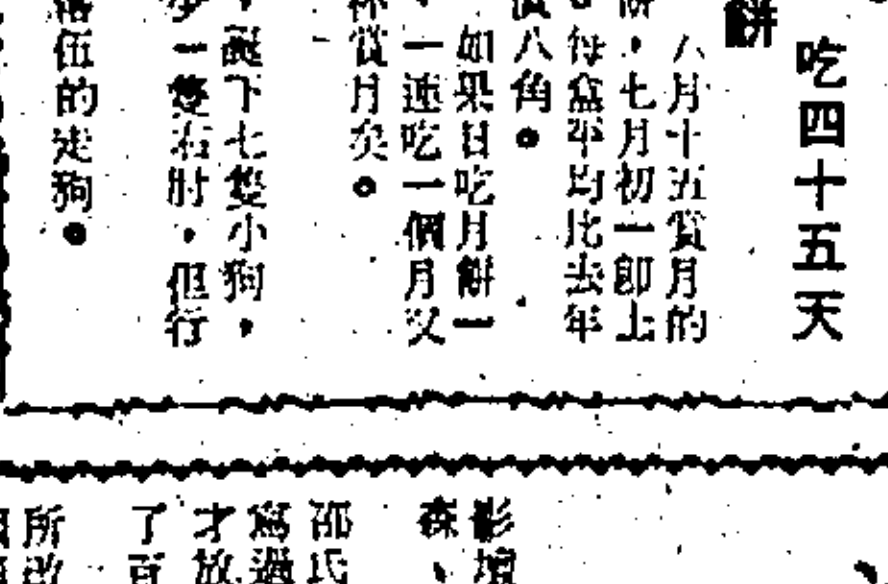 吃四十五天
餅
八月十五賞月的
餅，七月初一卽上
。每盒平均比去年
八角。
如果日吃月餅一
，一連吃一個月又
杯賞月矣。
，誕下七隻小狗，
步一隻右肘，但行
落伍的走狗。
影壇
森、
邵氏
寫過
才放
了百
所改